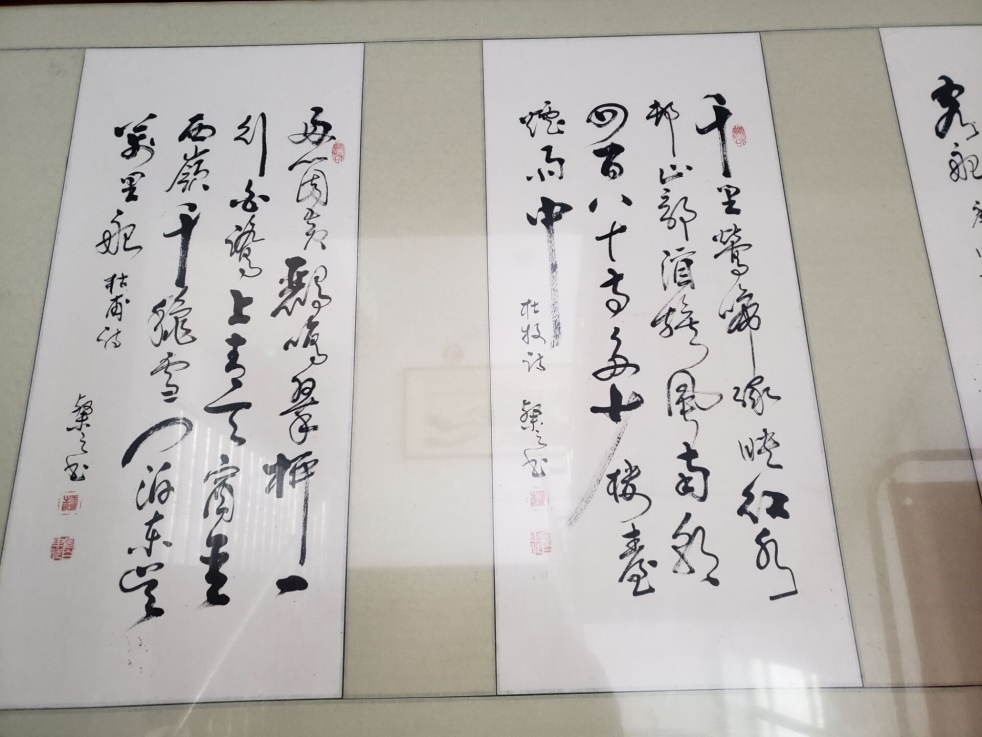 客船
千里鶯啼绿映红水
邨山郭酒旗风南朝
四百八十寺多少楼臺
煙雨中
杜牧诗
之书
两箇黄鸝鳴翠柳一
行白鷺上青天窗含
西嶺千秋雪门泊东吴
萬里船
杜甫诗
之书